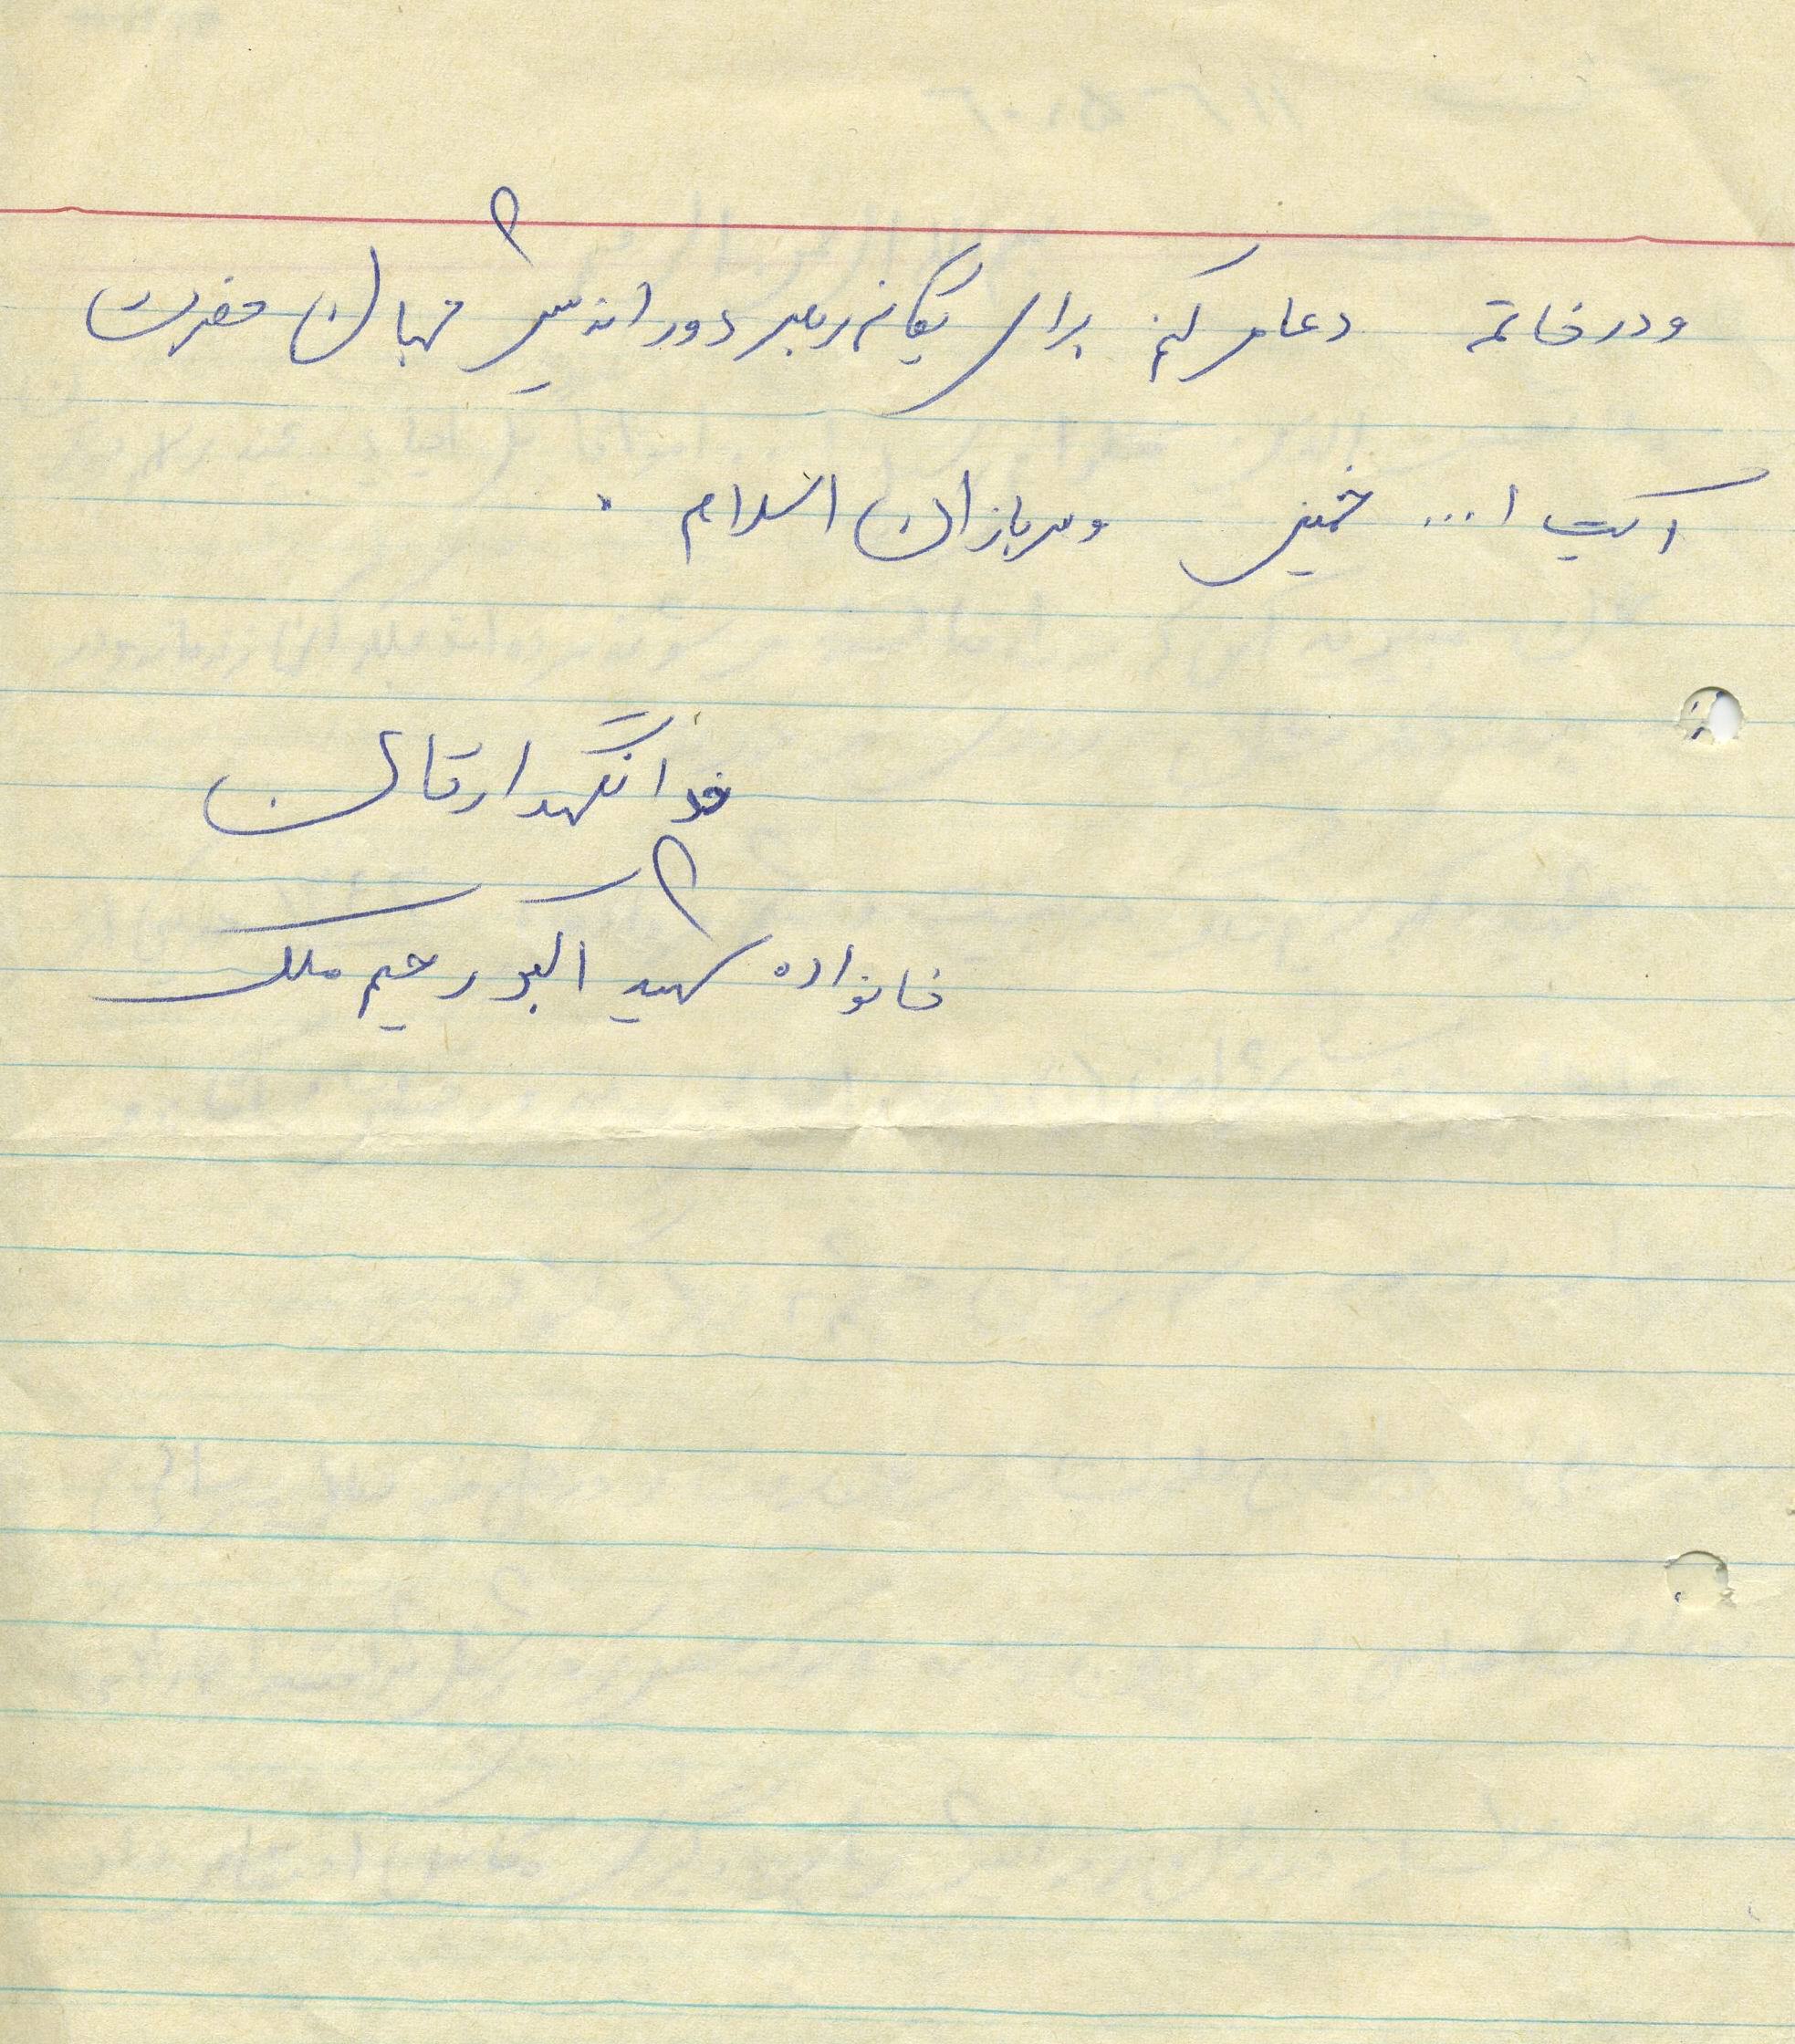 ودر خاتمه دعا می کنم برای یگانه رهبر دور اندیش جهان حضرت
آیت ا... خمینی و سربازان اسلام .
خدا نگهدارتان
خانواده شهید اکبر رحیم ملک